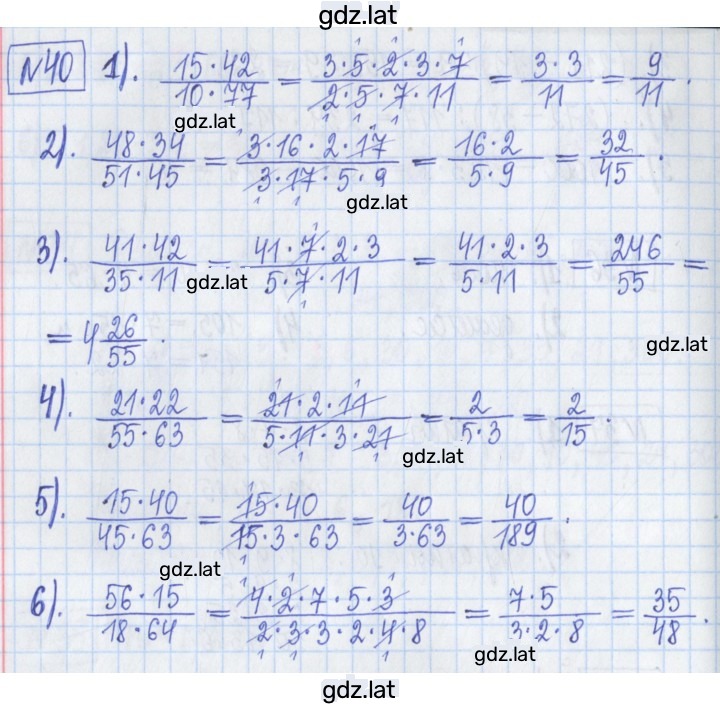 gdz.lat
№40 1). 15·42/10·77 = 3·5·2·3·7/2·5·7·11 = 3·3/11 = 9/11.
gdz.lat
2). 48·34/51·45 = 3·16·2·17/3·17·5·9 = 16·2/5·9 = 32/45.
gdz.lat
3). 41·42/35·11 = 41·7·2·3/5·7·11 = 41·2·3/5·11 = 246/55 =
gdz.lat
= 4 26/55.
gdz.lat
4). 21·22/55·63 = 21·2·11/5·11·3·21 = 2/5·3 = 2/15.
gdz.lat
5). 15·40/45·63 = 15·40/15·3·63 = 40/3·63 = 40/189.
gdz.lat
6). 56·15/18·64 = 4·2·7·5·3/2·3·3·2·4·8 = 7·5/3·2·8 = 35/48.
gdz.lat
gdz.lat